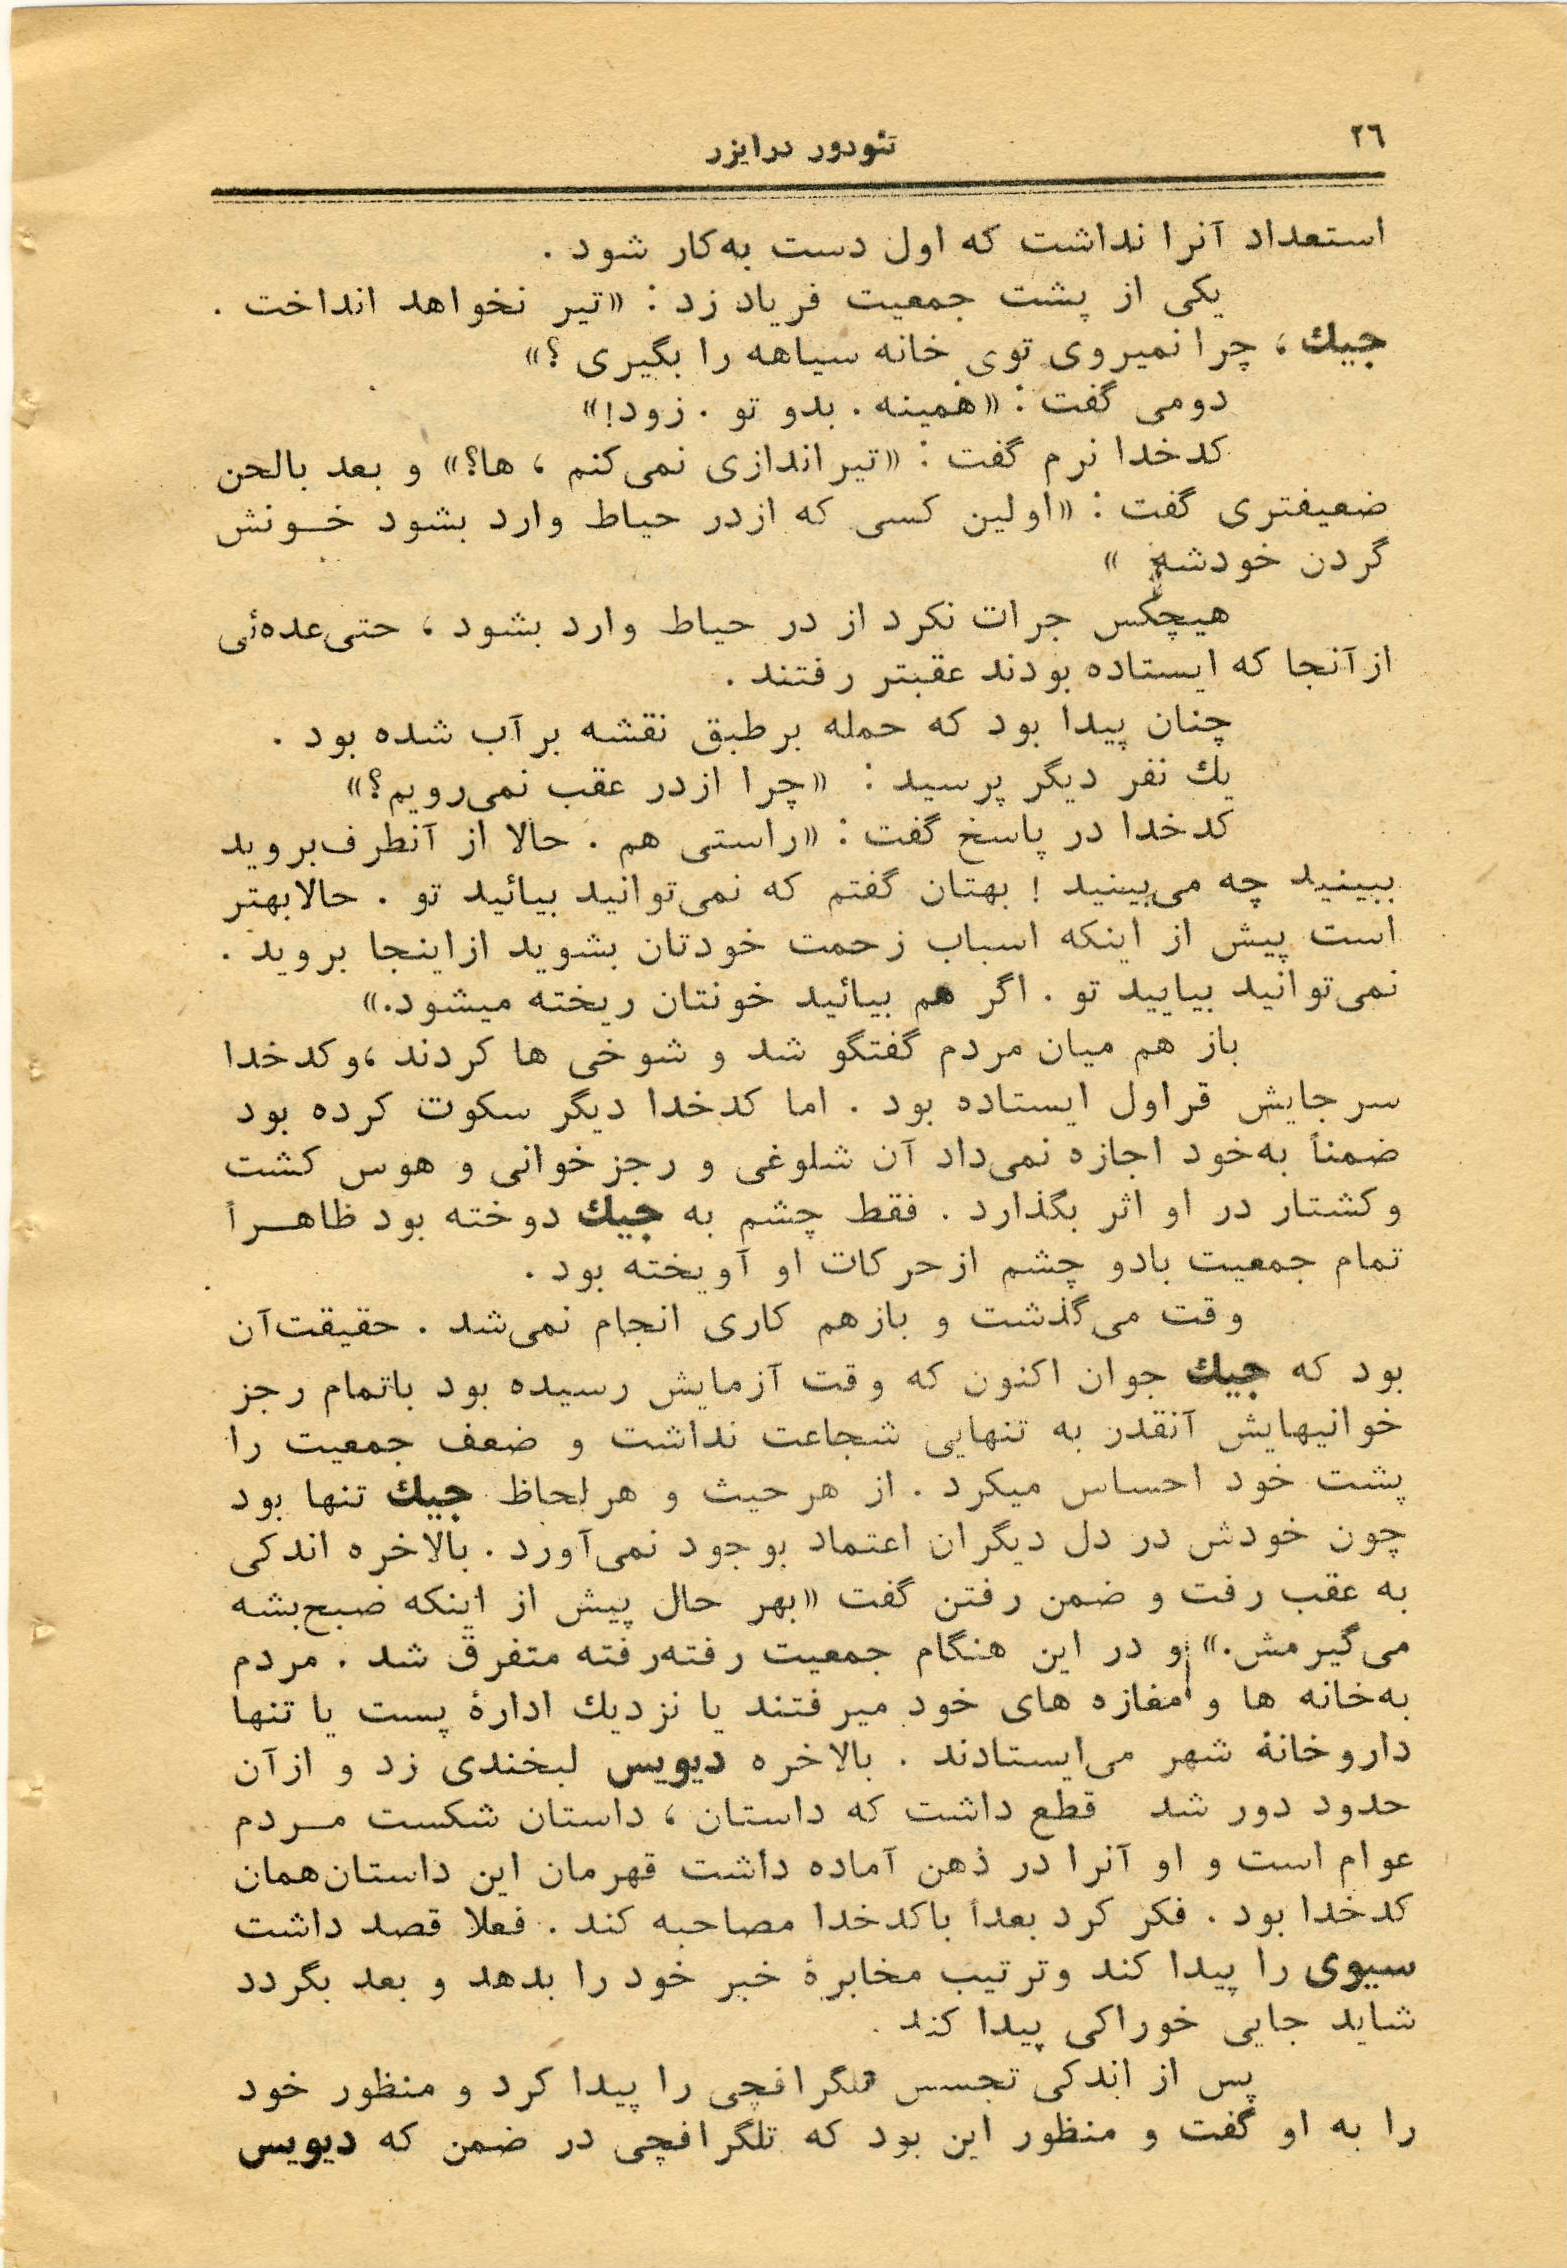 ۲٦
تئودور درایزر
استعداد آنرا نداشت که اول دست به‌کار شود .
یکی از پشت جمعیت فریاد زد : «تیر نخواهد انداخت .
جیك ، چرا نمیروی توی خانه سیاهه را بگیری ؟»
دومی گفت : «همینه . بدو تو . زود!»
کدخدا نرم گفت : «تیراندازی نمی‌کنم ، ها؟» و بعد بالحن
ضعیفتری گفت : «اولین کسی که ازدر حیاط وارد بشود خـونش
گردن خودشه »
هیچکس جرات نکرد از در حیاط وارد بشود ، حتی‌عده‌ئی
ازآنجا که ایستاده بودند عقبتر رفتند .
چنان پیدا بود که حمله برطبق نقشه برآب شده بود .
یك نفر دیگر پرسید : «چرا ازدر عقب نمی‌رویم؟»
کدخدا در پاسخ گفت : «راستی هم . حالا از آنطرف‌بروید
ببینید چه می‌بینید ! بهتان گفتم که نمی‌توانید بیائید تو . حالابهتر
است پیش از اینکه اسباب زحمت خودتان بشوید ازاینجا بروید .
نمی‌توانید بیایید تو . اگر هم بیائید خونتان ریخته میشود.»
باز هم میان مردم گفتگو شد و شوخی ها کردند ،وکدخدا
سرجایش قراول ایستاده بود . اما کدخدا دیگر سکوت کرده بود
ضمناً به‌خود اجازه نمی‌داد آن شلوغی و رجزخوانی و هوس کشت
وکشتار در او اثر بگذارد . فقط چشم به جیك دوخته بود ظاهـراً
تمام جمعیت بادو چشم ازحرکات او آویخته بود .
وقت می‌گذشت و بازهم کاری انجام نمی‌شد . حقیقت‌آن
بود که جیك جوان اکنون که وقت آزمایش رسیده بود باتمام رجز
خوانیهایش آنقدر به تنهایی شجاعت نداشت و ضعف جمعیت را
پشت خود احساس میکرد . از هرحیث و هرلحاظ جیك تنها بود
چون خودش در دل دیگران اعتماد بوجود نمی‌آورد . بالاخره اندکی
به عقب رفت و ضمن رفتن گفت «بهر حال پیش از اینکه صبح‌بشه
می‌گیرمش.» و در این هنگام جمعیت رفته‌رفته متفرق شد . مردم
به‌خانه ها و مغازه های خود میرفتند یا نزدیك ادارهٔ پست یا تنها
داروخانهٔ شهر می‌ایستادند . بالاخره دیویس لبخندی زد و ازآن
حدود دور شد قطع داشت که داستان ، داستان شکست مـردم
عوام است و او آنرا در ذهن آماده داشت قهرمان این داستان‌همان
کدخدا بود . فکر کرد بعداً باکدخدا مصاحبه کند . فعلا قصد داشت
سیوی را پیدا کند وترتیب مخابرهٔ خبر خود را بدهد و بعد بگردد
شاید جایی خوراکی پیدا کند .
پس از اندکی تجسس تلگرافچی را پیدا کرد و منظور خود
را به او گفت و منظور این بود که تلگرافچی در ضمن که دیویس